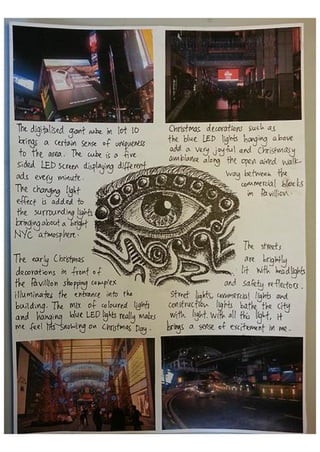 The digitalised giant cube in lot 10
brings a certain sense of uniqueness
to the area. The cube is a five
sided LED screen displaying different
ads every minute.
The changing light
effect is added to
the surrounding lights
bringing about a bright
NYC atmosphere.
Christmas decorations such as
the blue LED lights hanging above
add a very joyful and Christmasy
ambiance along the open aired walk-
way between the
commercial blocks
in Pavilion.
The early Christmas
decorations in front of
the Pavilion shopping complex
illuminates the entrance into the
building. The mix of coloured lights
and hanging blue LED lights really makes
me feel its snowing on Christmas Day.
The streets
are brightly
lit with headlights
and safety reflectors.
Street lights, commercial lights and
construction lights bathe the city
with light. With all this light, it
brings a sense of excitement in me.